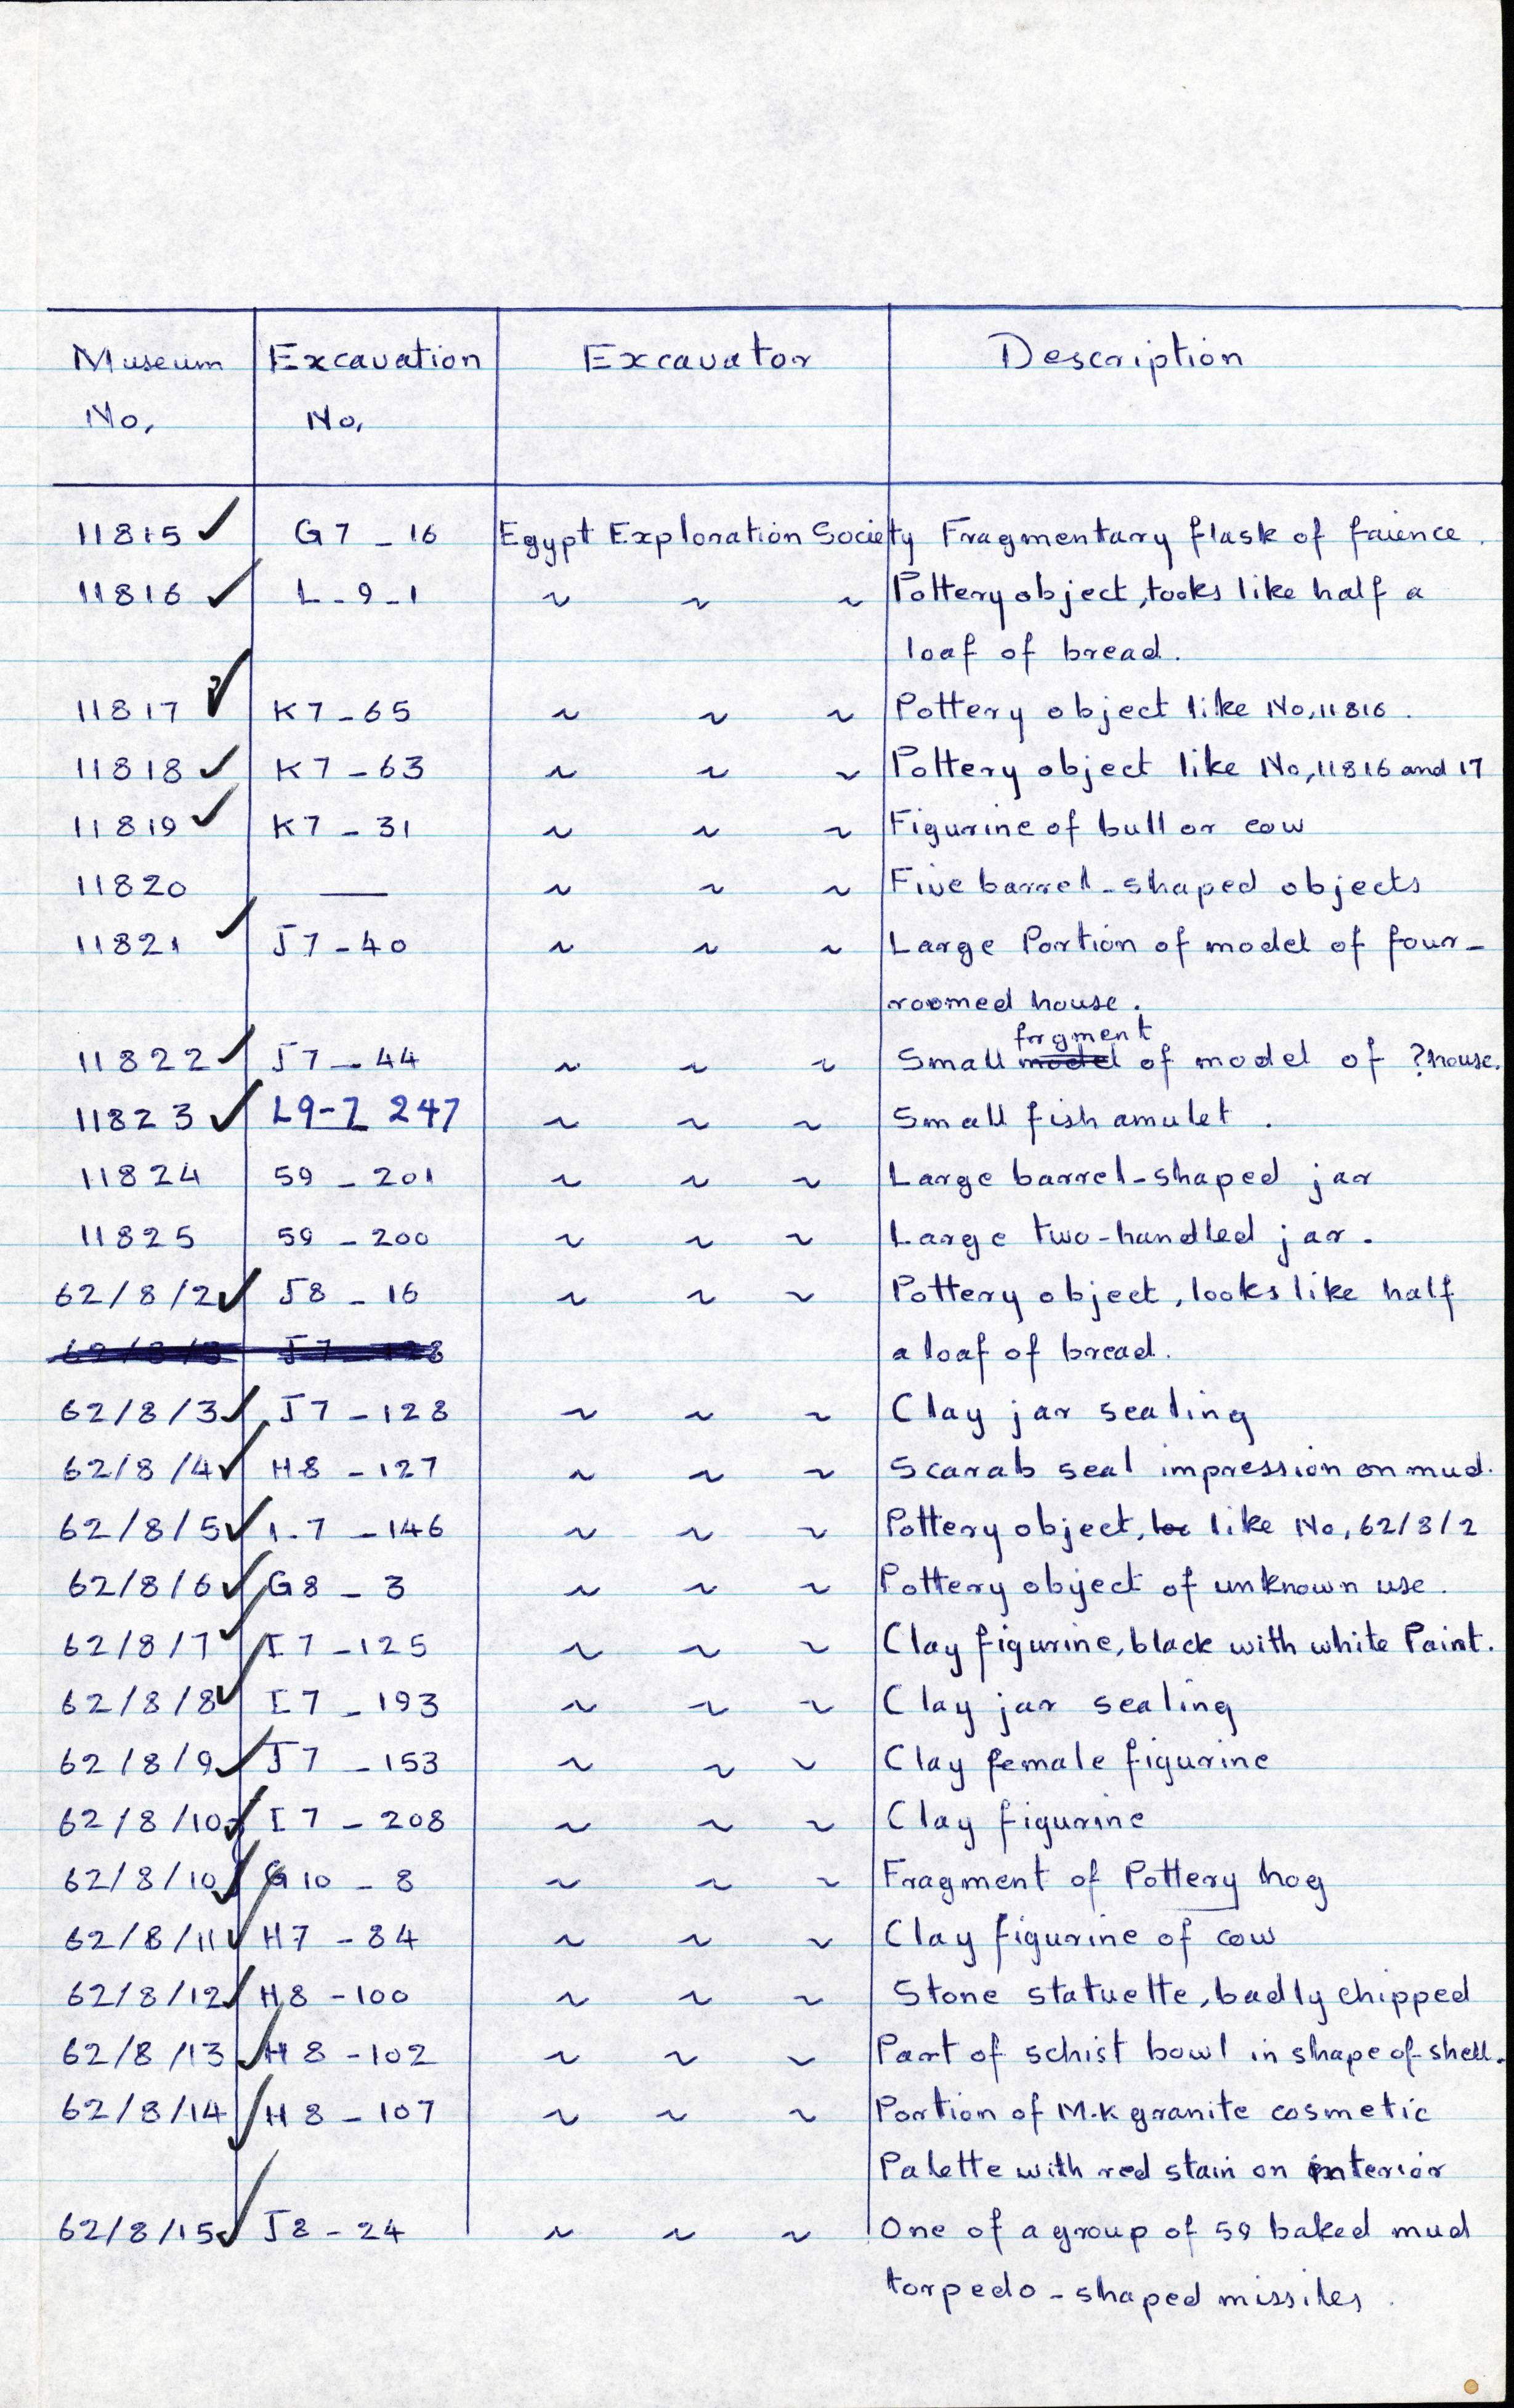 Museum No. | Excavation No. | Excavator | Description
11815 ✓ | G7 - 16 | Egypt Exploration Society | Fragmentary flask of faience.
11816 ✓ | L - 9 - 1 | ~ ~ ~ | Pottery object, looks like half a
loaf of bread.
11817 ✓ | K7 - 65 | ~ ~ ~ | Pottery object like No, 11816.
11818 ✓ | K7 - 63 | ~ ~ ~ | Pottery object like No, 11816 and 17
11819 ✓ | K7 - 31 | ~ ~ ~ | Figurine of bull or cow
11820 | — | ~ ~ ~ | Five barrel - shaped objects
11821 ✓ | J7 - 40 | ~ ~ ~ | Large Portion of model of four -
roomed house.
frgment
11822 ✓ | J7 - 44 | ~ ~ ~ | Small model of model of ? house.
11823 ✓ | L9-7 247 | ~ ~ ~ | Small fish amulet.
11824 | 59 - 201 | ~ ~ ~ | Large barrel - shaped jar
11825 | 59 - 200 | ~ ~ ~ | Large two - handled jar.
62/8/2 ✓ | J8 - 16 | ~ ~ ~ | Pottery object, looks like half
62/8/3 J7 - 128 | a loaf of bread.
62/8/3 ✓ | J7 - 128 | ~ ~ ~ | Clay jar sealing
62/8/4 ✓ | H8 - 127 | ~ ~ ~ | Scarab seal impression on mud.
62/8/5 ✓ | I-7 - 146 | ~ ~ ~ | Pottery object, loo like No, 62/8/2
62/8/6 ✓ | G8 - 3 | ~ ~ ~ | Pottery object of unknown use.
62/8/7 ✓ | I7 - 125 | ~ ~ ~ | Clay figurine, black with white Paint.
62/8/8 ✓ | I7 - 193 | ~ ~ ~ | Clay jar sealing
62/8/9 ✓ | J7 - 153 | ~ ~ ~ | Clay female figurine
62/8/10 ✓ | I7 - 208 | ~ ~ ~ | Clay figurine
62/8/10 ✓ | G10 - 8 | ~ ~ ~ | Fragment of Pottery hog
62/8/11 ✓ | H7 - 84 | ~ ~ ~ | Clay figurine of cow
62/8/12 ✓ | H8 - 100 | ~ ~ ~ | Stone statuette, badly chipped
62/8/13 ✓ | H8 - 102 | ~ ~ ~ | Part of schist bowl in shape of shell.
62/8/14 ✓ | H8 - 107 | ~ ~ ~ | Portion of M.K granite cosmetic
Palette with red stain on interior
62/8/15 ✓ | J8 - 24 | ~ ~ ~ | One of a group of 59 baked mud
torpedo - shaped missiles.